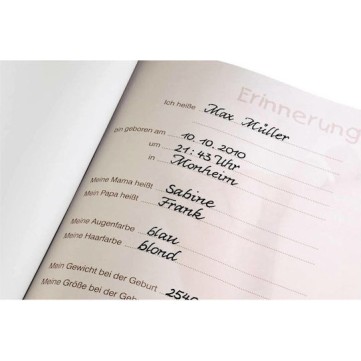 Erinnerung
Ich heiße Max Müller
bin geboren am 10.10.2010
um 21:43 Uhr
in Monheim
Meine Mama heißt Sabine
Mein Papa heißt Frank
Meine Augenfarbe blau
Meine Haarfarbe blond
Mein Gewicht bei der Geburt 254
Meine Größe bei der Geb